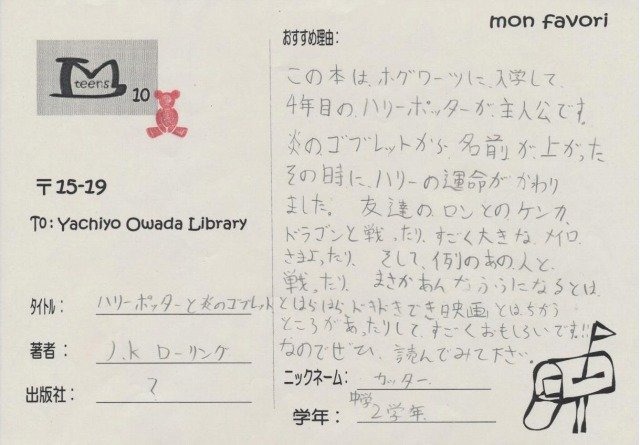 mon favori
teens
10
〒15-19
To: Yachiyo Owada Library
タイトル: ハリーポッターと炎のゴブレット
著者: J.K ローリング
出版社: ?
おすすめ理由:
この本は、ホグワーツに、入学して、
4年目の、ハリーポッターが、主人公です。
炎の、ゴブレットから、名前が、上がった
その時に、ハリーの運命が、かわり
ました。 友達の、ロンとの、ケンカ、
ドラゴンと戦ったり、すごく大きな、メイロ、
さまよったり、そして、例のあの人と、
戦ったり、まさかあんなふうになるとは、
とはらはら、ドキドキでき映画とはちがう
ところがあったりして、すごくおもしろいです!!
なのでぜひ、読んでみて下さい。
ニックネーム: カッター
学年: 中学2学年